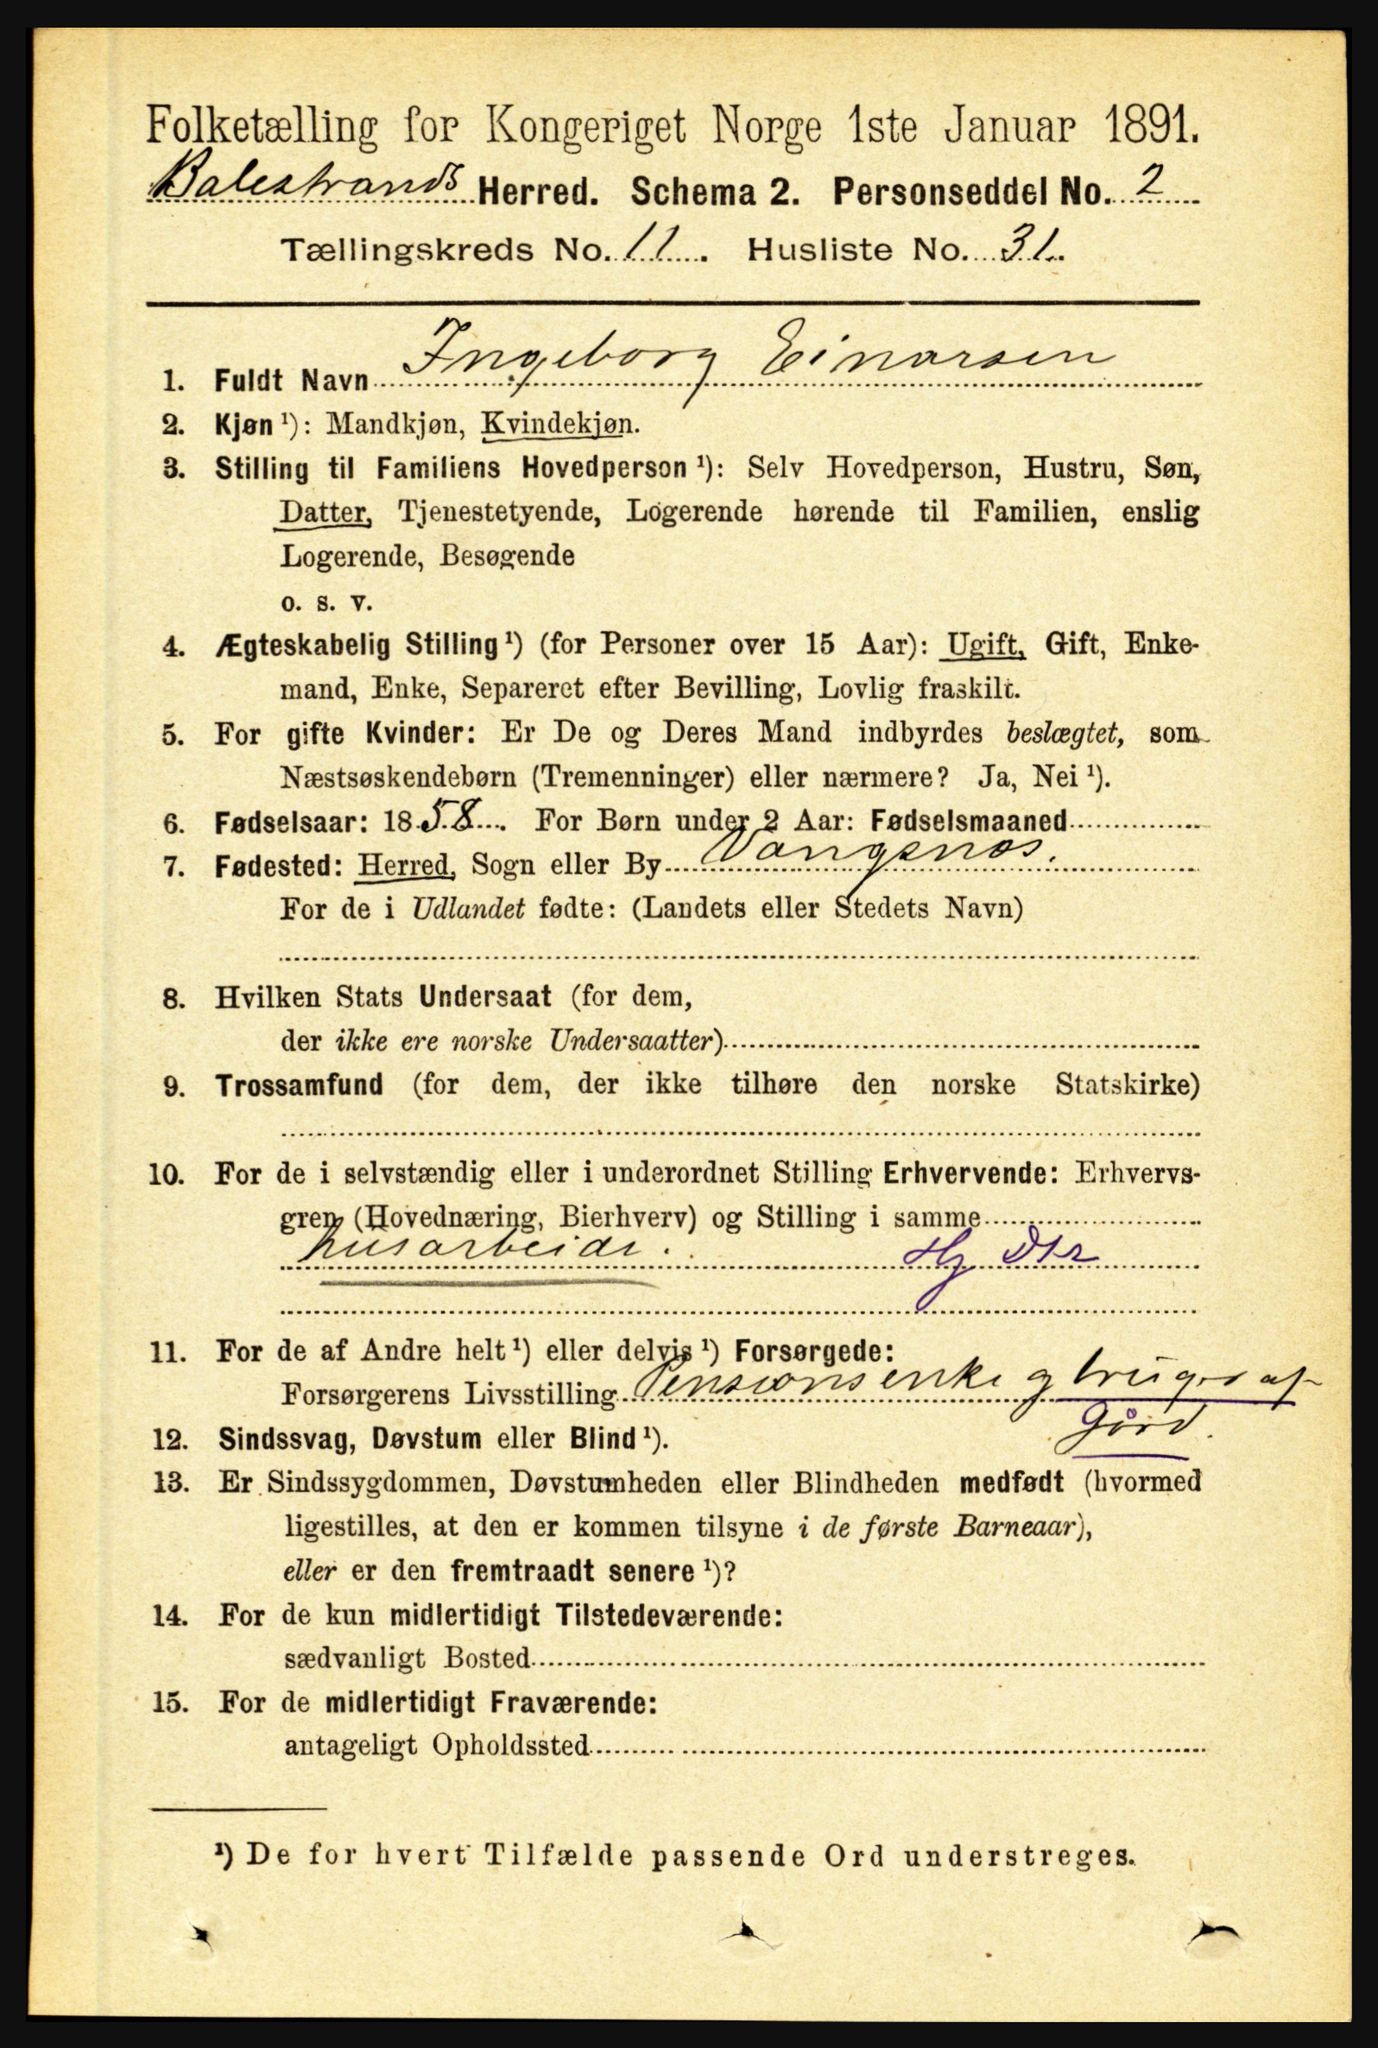 Folketælling for Kongeriget Norge 1ste Januar 1891.
Balestrands Herred. Schema 2. Personseddel No. 2
Tællingskreds No. 11. Husliste No. 31.
1. Fuldt Navn Ingeborg Einarsen
2. Kjøn ¹): Mandkjøn, Kvindekjøn.
3. Stilling til Familiens Hovedperson ¹): Selv Hovedperson, Hustru, Søn,
Datter, Tjenestetyende, Logerende hørende til Familien, enslig
Logerende, Besøgende
o. s. v.
4. Ægteskabelig Stilling ¹) (for Personer over 15 Aar): Ugift, Gift, Enke-
mand, Enke, Separeret efter Bevilling, Lovlig fraskilt.
5. For gifte Kvinder: Er De og Deres Mand indbyrdes beslægtet, som
Næstsøskendebørn (Tremenninger) eller nærmere? Ja, Nei ¹).
6. Fødselsaar: 1858. For Børn under 2 Aar: Fødselsmaaned
7. Fødested: Herred, Sogn eller By Vangsnes.
For de i Udlandet fødte: (Landets eller Stedets Navn)
8. Hvilken Stats Undersaat (for dem,
der ikke ere norske Undersaatter)
9. Trossamfund (for dem, der ikke tilhøre den norske Statskirke)
10. For de i selvstændig eller i underordnet Stilling Erhvervende: Erhvervs-
gren (Hovednæring, Bierhverv) og Stilling i samme
husarbeide. Hj Dtr
11. For de af Andre helt ¹) eller delvis ¹) Forsørgede:
Forsørgerens Livsstilling Pensionsenke og bruger af
Gård.
12. Sindssvag, Døvstum eller Blind ¹).
13. Er Sindssygdommen, Døvstumheden eller Blindheden medfødt (hvormed
ligestilles, at den er kommen tilsyne i de første Barneaar),
eller er den fremtraadt senere ¹)?
14. For de kun midlertidigt Tilstedeværende:
sædvanligt Bosted
15. For de midlertidigt Fraværende:
antageligt Opholdssted
¹) De for hvert Tilfælde passende Ord understreges.